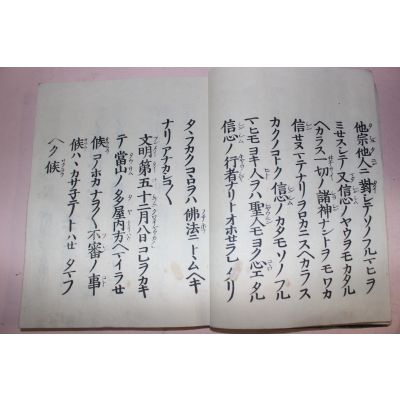 他宗他人ニ對シテソノフルマヒヲ
ミセスシテ又信心ノヤウヲモカタル
ヘカラス一切ノ諸神ナントヲモワカ
信セヌマテナリヲロカニスヘカラス
カクノコトク信心ノカタモソノフル
マヒモヨキ人ヲハ聖人モヨク心エタル
信心ノ行者ナリトオホセラレタリ
タヽフカクコヽロヲハ佛法ニトヽムヘキ
ナリアナカシコ〱
文明第五十二月八日コレヲカキ
テ當山ノ多屋内方ヘマイラセ
候コノホカナヲ〱不審ノ事
候ハヽカサ子テトハセタマフ
ヘク候